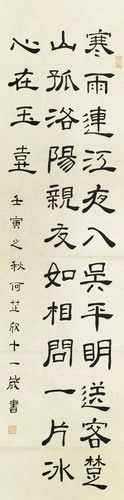 寒雨連江夜入吳平明送客楚
山孤洛陽親友如相問一片冰
心在玉壺
壬寅之秋何芷欣十一歲書